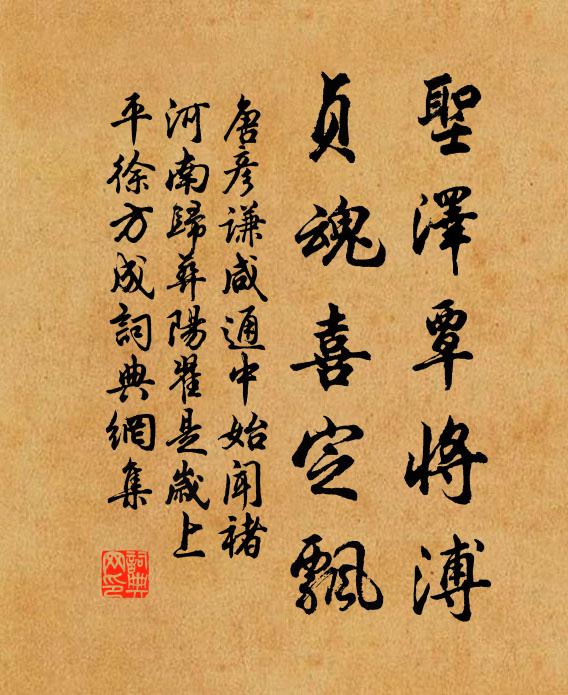 聖澤覃將溥
貞魂喜定飄
唐彥謙咸通中始聞褚
河南歸葬陽翟是歲上
平徐方成詞典網集
詞典网印